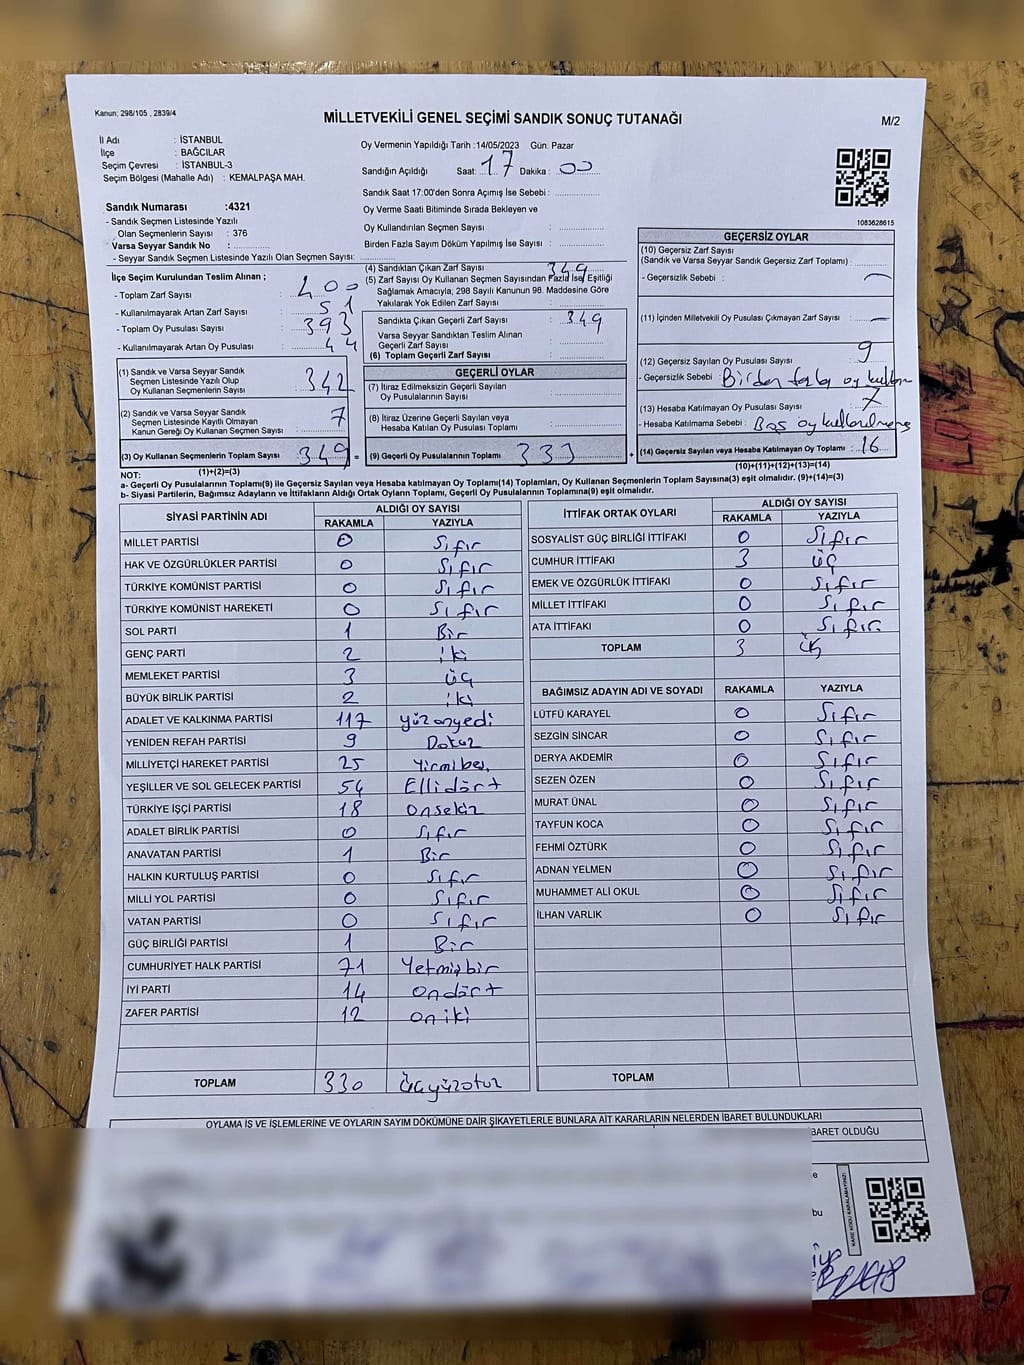 Kanun; 298/105 , 2839/4
MİLLETVEKİLİ GENEL SEÇİMİ SANDIK SONUÇ TUTANAĞI
M/2
İl Adı : İSTANBUL
İlçe : BAĞCILAR
Seçim Çevresi : İSTANBUL-3
Seçim Bölgesi (Mahalle Adı) : KEMALPAŞA MAH.
Sandık Numarası :4321
- Sandık Seçmen Listesinde Yazılı
Olan Seçmenlerin Sayısı : 376
Varsa Seyyar Sandık No :
- Seyyar Sandık Seçmen Listesinde Yazılı Olan Seçmen Sayısı:
Oy Vermenin Yapıldığı Tarih :14/05/2023 Gün: Pazar
Sandığın Açıldığı Saat: 17 Dakika : 00
Sandık Saat 17:00'den Sonra Açımış İse Sebebi :
Oy Verme Saati Bitiminde Sırada Bekleyen ve
Oy Kullandırılan Seçmen Sayısı :
Birden Fazla Sayım Döküm Yapılmış İse Sayısı :
1083628615
İlçe Seçim Kurulundan Teslim Alınan ;
- Toplam Zarf Sayısı : 400
- Kullanılmayarak Artan Zarf Sayısı : 51
- Toplam Oy Pusulası Sayısı : 393
- Kullanılmayarak Artan Oy Pusulası : 44
(1) Sandık ve Varsa Seyyar Sandık
Seçmen Listesinde Yazılı Olup
Oy Kullanan Seçmenlerin Sayısı : 342
(2) Sandık ve Varsa Seyyar Sandık
Seçmen Listesinde Kayıtlı Olmayan
Kanun Gereği Oy Kullanan Seçmen Sayısı : 7
(3) Oy Kullanan Seçmenlerin Toplam Sayısı : 349 =
(4) Sandıktan Çıkan Zarf Sayısı : 349
(5) Zarf Sayısı Oy Kullanan Seçmen Sayısından Fazla İse, Eşitliği
Sağlamak Amacıyla, 298 Sayılı Kanunun 98. Maddesine Göre
Yakılarak Yok Edilen Zarf Sayısı :
Sandıkta Çıkan Geçerli Zarf Sayısı : 349
Varsa Seyyar Sandıktan Teslim Alınan
Geçerli Zarf Sayısı :
(6) Toplam Geçerli Zarf Sayısı :
GEÇERLİ OYLAR
(7) İtiraz Edilmeksizin Geçerli Sayılan
Oy Pusulalarının Sayısı :
(8) İtiraz Üzerine Geçerli Sayılan veya
Hesaba Katılan Oy Pusulası Toplamı :
(9) Geçerli Oy Pusulalarının Toplamı : 333 +
GEÇERSİZ OYLAR
(10) Geçersiz Zarf Sayısı
(Sandık ve Varsa Seyyar Sandık Geçersiz Zarf Toplamı) :
- Geçersizlik Sebebi : —
(11) İçinden Milletvekili Oy Pusulası Çıkmayan Zarf Sayısı : —
(12) Geçersiz Sayılan Oy Pusulası Sayısı : 9
- Geçersizlik Sebebi : Birden fazla oy
(13) Hesaba Katılmayan Oy Pusulası Sayısı : 7
- Hesaba Katılmama Sebebi : Boş oy
(14) Geçersiz Sayılan veya Hesaba Katılmayan Oy Toplamı : 16
NOT: (1)+(2)=(3)
(10)+(11)+(12)+(13)=(14)
a- Geçerli Oy Pusulalarının Toplamı(9) ile Geçersiz Sayılan veya Hesaba Katılmayan Oy Toplamı(14) Toplamları, Oy Kullanan Seçmenlerin Toplam Sayısına(3) eşit olmalıdır. (9)+(14)=(3)
b- Siyasi Partilerin, Bağımsız Adayların ve İttifakların Aldığı Ortak Oyların Toplamı, Geçerli Oy Pusulalarının Toplamına(9) eşit olmalıdır.
SİYASİ PARTİNİN ADI ALDIĞI OY SAYISI
RAKAMLA YAZIYLA
MİLLET PARTİSİ 0 Sıfır
HAK VE ÖZGÜRLÜKLER PARTİSİ 0 Sıfır
TÜRKİYE KOMÜNİST PARTİSİ 0 Sıfır
TÜRKİYE KOMÜNİST HAREKETİ 0 Sıfır
SOL PARTİ 1 Bir
GENÇ PARTİ 2 iki
MEMLEKET PARTİSİ 3 üç
BÜYÜK BİRLİK PARTİSİ 2 iki
ADALET VE KALKINMA PARTİSİ 117 yüzonyedi
YENİDEN REFAH PARTİSİ 9 Dokuz
MİLLİYETÇİ HAREKET PARTİSİ 25 Yirmibeş
YEŞİLLER VE SOL GELECEK PARTİSİ 54 Ellidört
TÜRKİYE İŞÇİ PARTİSİ 18 onsekiz
ADALET BİRLİK PARTİSİ 0 Sıfır
ANAVATAN PARTİSİ 1 Bir
HALKIN KURTULUŞ PARTİSİ 0 Sıfır
MİLLİ YOL PARTİSİ 0 Sıfır
VATAN PARTİSİ 0 Sıfır
GÜÇ BİRLİĞİ PARTİSİ 1 Bir
CUMHURİYET HALK PARTİSİ 71 Yetmişbir
İYİ PARTİ 14 ondört
ZAFER PARTİSİ 12 oniki
TOPLAM 330 üçyüzotuz
İTTİFAK ORTAK OYLARI ALDIĞI OY SAYISI
RAKAMLA YAZIYLA
SOSYALİST GÜÇ BİRLİĞİ İTTİFAKI 0 Sıfır
CUMHUR İTTİFAKI 3 üç
EMEK VE ÖZGÜRLÜK İTTİFAKI 0 Sıfır
MİLLET İTTİFAKI 0 Sıfır
ATA İTTİFAKI 0 Sıfır.
TOPLAM 3 üç
BAĞIMSIZ ADAYIN ADI VE SOYADI RAKAMLA YAZIYLA
LÜTFÜ KARAYEL 0 Sıfır
SEZGİN SİNCAR 0 Sıfır
DERYA AKDEMİR 0 Sıfır
SEZEN ÖZEN 0 Sıfır
MURAT ÜNAL 0 Sıfır
TAYFUN KOCA 0 Sıfır
FEHMİ ÖZTÜRK 0 Sıfır
ADNAN YELMEN 0 Sıfır
MUHAMMET ALİ OKUL 0 Sıfır
İLHAN VARLIK 0 Sıfır
TOPLAM
OYLAMA İŞ VE İŞLEMLERİNE VE OYLARIN SAYIM DÖKÜMÜNE DAİR ŞİKAYETLERLE BUNLARA AİT KARARLARIN NELERDEN İBARET BULUNDUKLARI
İBARET OLDUĞU
KARE KODU KARALAMAYINIZ!